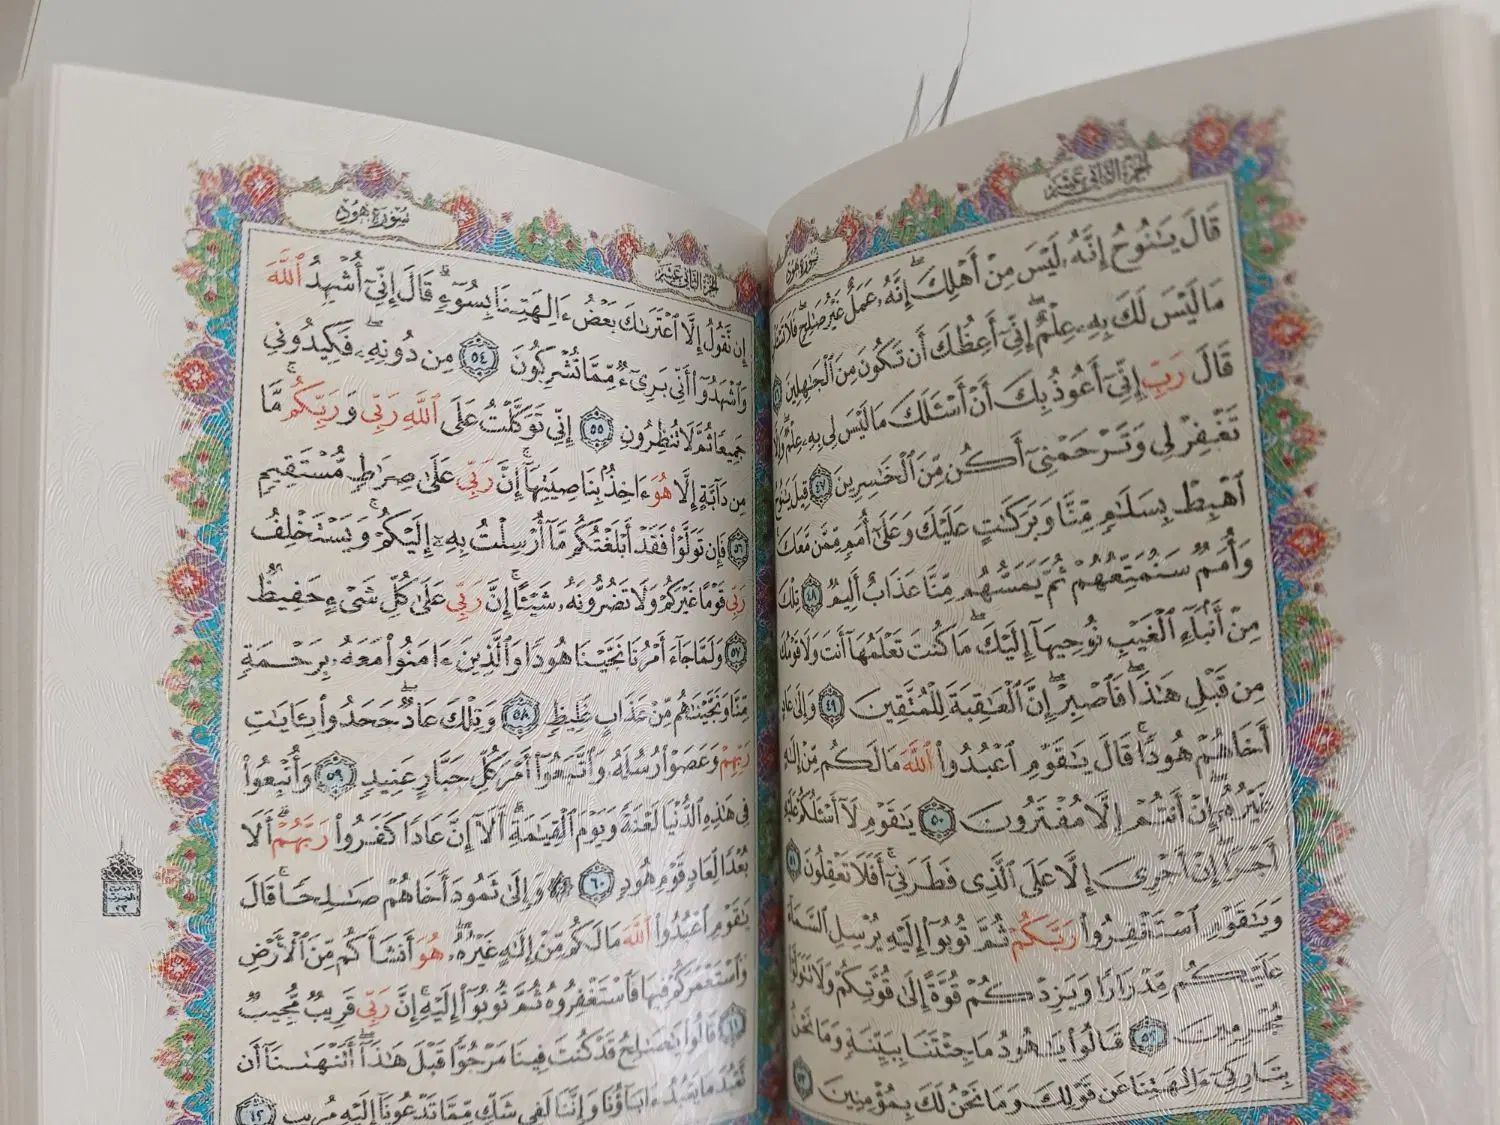 الجزء الثاني عشر
سورة هود
قَالَ يَٰنُوحُ إِنَّهُۥ لَيْسَ مِنْ أَهْلِكَ ۖ إِنَّهُۥ عَمَلٌ غَيْرُ صَٰلِحٍ ۖ
مَا لَيْسَ لَكَ بِهِۦ عِلْمٌ ۖ إِنِّىٓ أَعِظُكَ أَن تَكُونَ مِنَ ٱلْجَٰهِلِينَ
قَالَ رَبِّ إِنِّىٓ أَعُوذُ بِكَ أَنْ أَسْـَٔلَكَ مَا لَيْسَ لِى بِهِۦ عِلْمٌ ۖ
تَغْفِرْ لِى وَتَرْحَمْنِىٓ أَكُن مِّنَ ٱلْخَٰسِرِينَ ٤٧ قِيلَ
ٱهْبِطْ بِسَلَٰمٍ مِّنَّا وَبَرَكَٰتٍ عَلَيْكَ وَعَلَىٰٓ أُمَمٍ مِّمَّن مَّعَكَ ۚ
وَأُمَمٌ سَنُمَتِّعُهُمْ ثُمَّ يَمَسُّهُم مِّنَّا عَذَابٌ أَلِيمٌ ٤٨ تِلْكَ
مِنْ أَنۢبَآءِ ٱلْغَيْبِ نُوحِيهَآ إِلَيْكَ ۖ مَا كُنتَ تَعْلَمُهَآ أَنتَ وَلَا قَوْمُكَ
مِن قَبْلِ هَٰذَا ۖ فَٱصْبِرْ ۖ إِنَّ ٱلْعَٰقِبَةَ لِلْمُتَّقِينَ ٤٩ وَإِلَىٰ عَادٍ
أَخَاهُمْ هُودًا ۚ قَالَ يَٰقَوْمِ ٱعْبُدُوا۟ ٱللَّهَ مَا لَكُم مِّنْ إِلَٰهٍ
غَيْرُهُۥٓ ۖ إِنْ أَنتُمْ إِلَّا مُفْتَرُونَ ٥٠ يَٰقَوْمِ لَآ أَسْـَٔلُكُمْ عَلَيْهِ
أَجْرًا ۖ إِنْ أَجْرِىَ إِلَّا عَلَى ٱلَّذِى فَطَرَنِىٓ ۚ أَفَلَا تَعْقِلُونَ ٥١
وَيَٰقَوْمِ ٱسْتَغْفِرُوا۟ رَبَّكُمْ ثُمَّ تُوبُوٓا۟ إِلَيْهِ يُرْسِلِ ٱلسَّمَآءَ
عَلَيْكُم مِّدْرَارًا وَيَزِدْكُمْ قُوَّةً إِلَىٰ قُوَّتِكُمْ وَلَا تَتَوَلَّوْا۟
مُجْرِمِينَ ٥٢ قَالُوا۟ يَٰهُودُ مَا جِئْتَنَا بِبَيِّنَةٍ وَمَا نَحْنُ
بِتَارِكِىٓ ءَالِهَتِنَا عَن قَوْلِكَ وَمَا نَحْنُ لَكَ بِمُؤْمِنِينَ ٥٣
الجزء الثاني عشر
سورة هود
إِن نَّقُولُ إِلَّا ٱعْتَرَىٰكَ بَعْضُ ءَالِهَتِنَا بِسُوٓءٍ ۗ قَالَ إِنِّىٓ أُشْهِدُ ٱللَّهَ
وَٱشْهَدُوٓا۟ أَنِّى بَرِىٓءٌ مِّمَّا تُشْرِكُونَ ٥٤ مِن دُونِهِۦ ۖ فَكِيدُونِى
جَمِيعًا ثُمَّ لَا تُنظِرُونِ ٥٥ إِنِّى تَوَكَّلْتُ عَلَى ٱللَّهِ رَبِّى وَرَبِّكُم ۚ مَّا
مِن دَآبَّةٍ إِلَّا هُوَ ءَاخِذٌۢ بِنَاصِيَتِهَآ ۚ إِنَّ رَبِّى عَلَىٰ صِرَٰطٍ مُّسْتَقِيمٍ
٥٦ فَإِن تَوَلَّوْا۟ فَقَدْ أَبْلَغْتُكُم مَّآ أُرْسِلْتُ بِهِۦٓ إِلَيْكُمْ ۚ وَيَسْتَخْلِفُ
رَبِّى قَوْمًا غَيْرَكُمْ وَلَا تَضُرُّونَهُۥ شَيْـًٔا ۚ إِنَّ رَبِّى عَلَىٰ كُلِّ شَىْءٍ حَفِيظٌ
٥٧ وَلَمَّا جَآءَ أَمْرُنَا نَجَّيْنَا هُودًا وَٱلَّذِينَ ءَامَنُوا۟ مَعَهُۥ بِرَحْمَةٍ
مِّنَّا وَنَجَّيْنَٰهُم مِّنْ عَذَابٍ غَلِيظٍ ٥٨ وَتِلْكَ عَادٌ ۖ جَحَدُوا۟ بِـَٔايَٰتِ
رَبِّهِمْ وَعَصَوْا۟ رُسُلَهُۥ وَٱتَّبَعُوٓا۟ أَمْرَ كُلِّ جَبَّارٍ عَنِيدٍ ٥٩ وَأُتْبِعُوا۟
فِى هَٰذِهِ ٱلدُّنْيَا لَعْنَةً وَيَوْمَ ٱلْقِيَٰمَةِ ۗ أَلَآ إِنَّ عَادًا كَفَرُوا۟ رَبَّهُمْ ۗ أَلَا
بُعْدًا لِّعَادٍ قَوْمِ هُودٍ ٦٠ وَإِلَىٰ ثَمُودَ أَخَاهُمْ صَٰلِحًا ۚ قَالَ
يَٰقَوْمِ ٱعْبُدُوا۟ ٱللَّهَ مَا لَكُم مِّنْ إِلَٰهٍ غَيْرُهُۥ ۖ هُوَ أَنشَأَكُم مِّنَ ٱلْأَرْضِ
وَٱسْتَعْمَرَكُمْ فِيهَا فَٱسْتَغْفِرُوهُ ثُمَّ تُوبُوٓا۟ إِلَيْهِ ۚ إِنَّ رَبِّى قَرِيبٌ مُّجِيبٌ
٦١ قَالُوا۟ يَٰصَٰلِحُ قَدْ كُنتَ فِينَا مَرْجُوًّا قَبْلَ هَٰذَآ ۖ أَتَنْهَىٰنَآ أَن
نَّعْبُدَ مَا يَعْبُدُ ءَابَآؤُنَا وَإِنَّنَا لَفِى شَكٍّ مِّمَّا تَدْعُونَآ إِلَيْهِ مُرِيبٍ ٦٢